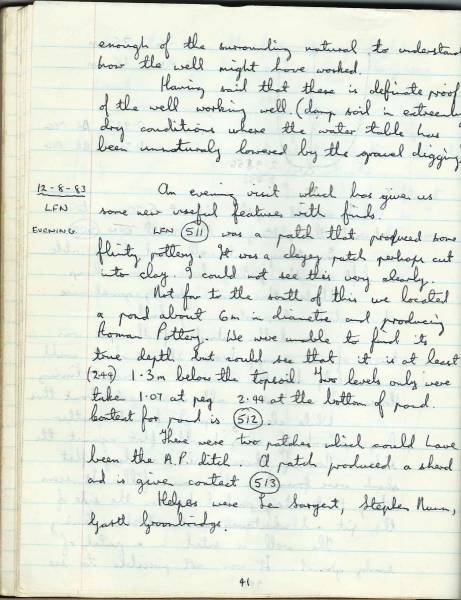 enough of the surrounding natural, to understand
how the well might have worked.
Having said that there is definate proof
of the well working well. (damp soil in extreemly
dry conditions where the water table has
been unnaturaly lowered by the gravel digging)
12-8-83 An evening visit which has given us
LFN some new useful features with finds.
EVENING LFN 511 was a patch that produced some
flinty pottery. It was a clayey patch perhaps cut
into clay. I could not see this very clearly.
Not far to the south of this we located
a pond about 6m in diametre and producing
Roman Pottery. We were unable to find its
true depth but could see that it is at least
(2.49) 1.3m below the topsoil. Two levels only were
take 1.07 at peg 2.44 at the bottom of pond.
Context for pond is 512
There were two patches which could have
been the A.P. ditch. A patch produced a sherd
ad is given context 513
Helpers were Le Sargent, Stephen Nunn,
Garth Groombridge.
41